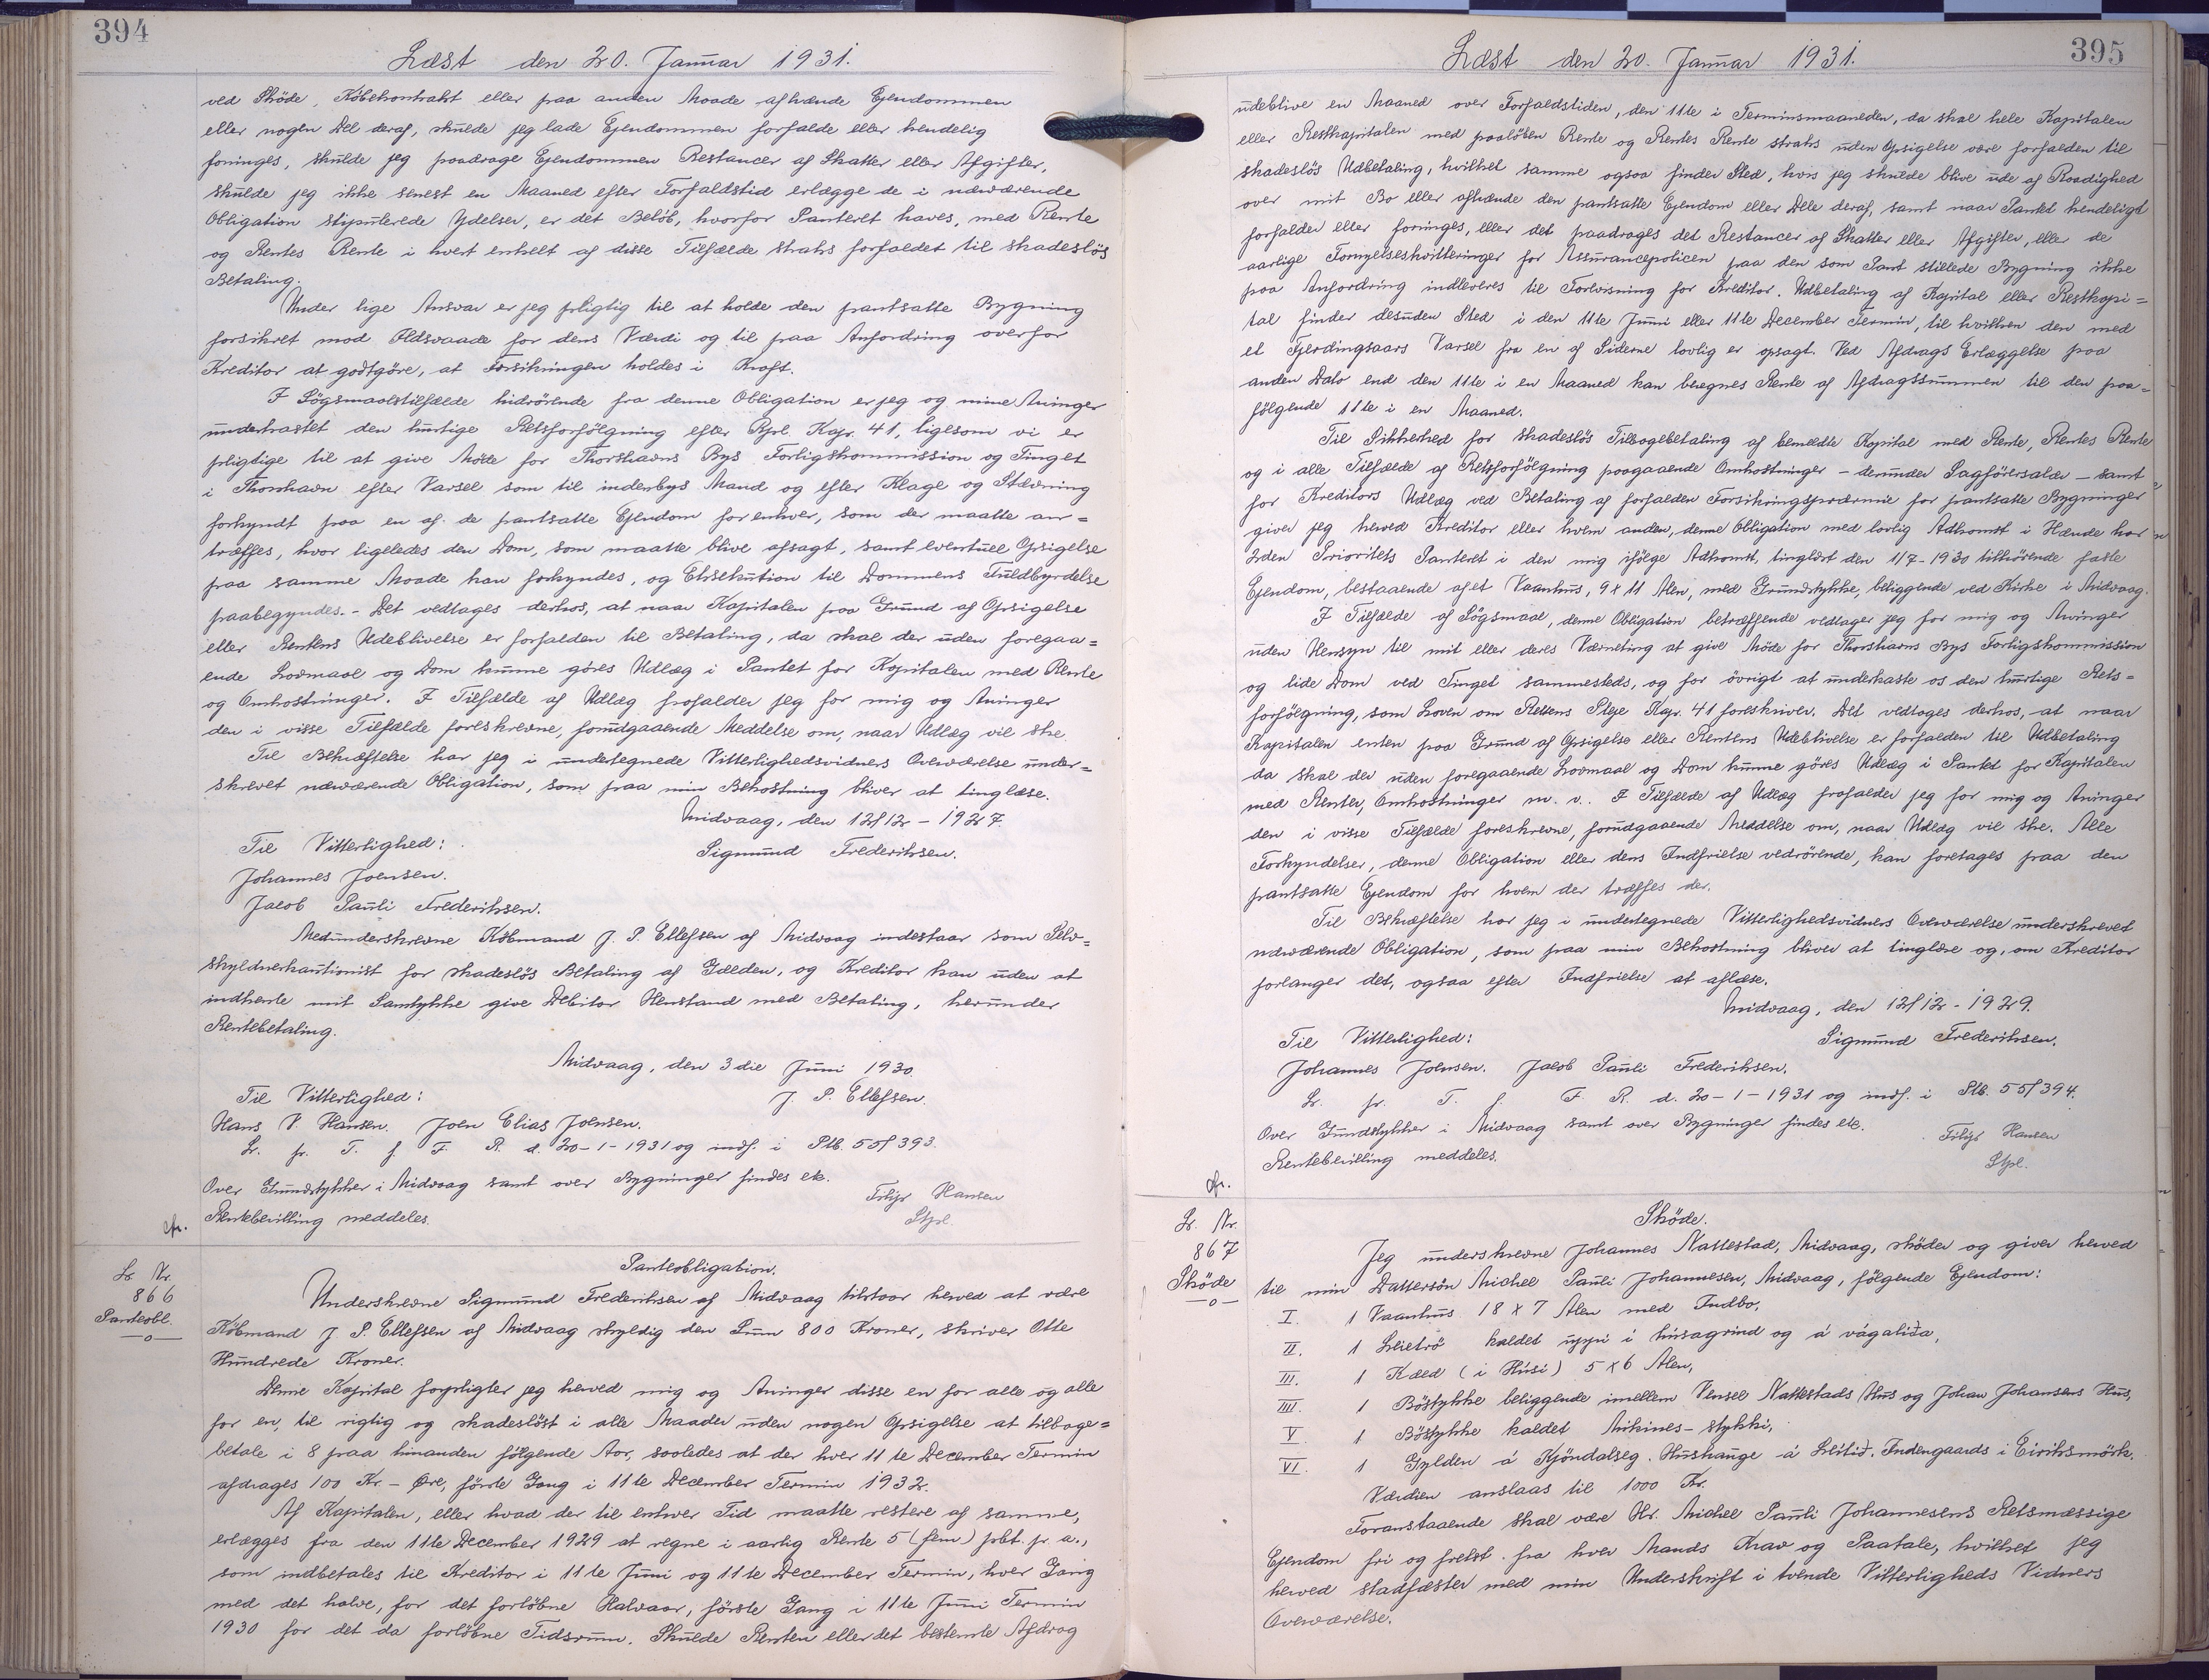 394
Læst den 20. Januar 1931.
ved Skøde, Købekontrakt eller paa anden Maade afhænde Ejendommen
eller nogen Del deraf, skulde jeg lade Ejendommen forfalde eller kendelig
foringes, skulde jeg paadrage Ejendommen Restancer af Skatter eller Afgifter,
skulde jeg ikke senest en Maaned efter Forfaldstid erlægge de i nærværende
Obligation stipulerede Ydelser, er det Beløb, hvorfor Panteret haves, med Rente
og Rentes Rente i hvert enkelt af disse Tilfælde straks forfaldet til skadesløs
Betaling.
Under lige Ansvar er jeg pligtig til at holde den pantsatte Bygning
forsikret mod Ildsvaade for dens Værdi og til paa Anfordring overfor
Kreditor at godtgøre, at Forsikringen holdes i Kraft.
I Søgsmaalstilfælde hidrørende fra denne Obligation er jeg og mine Arvinger
underkastet den hurtige Retsforfølgning efter Rpl. Kap. 41, ligesom vi er
pligtige til at give Møde for Thorshavns Bys Forligskommission og Tinget
i Thorshavn efter Varsel som til indenbys Mand og efter Klage og Stævning
forkyndt paa en af de pantsatte Ejendom for enhver, som der maatte an=
træffes, hvor ligeledes den Dom, som maatte blive afsagt, samt eventuel Opsigelse
paa samme Maade kan forkyndes, og Eksekution til Dommens Fuldbyrdelse
paabegyndes. - Det vedtages derhos, at naar Kapitalen paa Grund af Opsigelse
eller Rentens Udeblivelse er forfalden til Betaling, da skal der uden foregaa=
ende Lovmaal og Dom kunne göres Udlæg i Pantet for Kapitalen med Rente
og Omkostninger. I Tilfælde af Udlæg frafalder jeg for mig og Arvinger
den i visse Tilfælde foreskrevne, forudgaaende Meddelse om, naar Udlæg vil ske.
Til Bekræftelse har jeg i undertegnede Vitterlighedsvidners Overværelse under=
skrevet nærværende Obligation, som paa min Bekostning bliver at tinglæse.
Midvaag, den 12/12 - 1927.
Til Vitterlighed:
Sigmund Frederiksen.
Johannes Joensen.
Jacob Pauli Frederiksen.
Medunderskrevne Købmand J. P. Ellefsen af Midvaag indestaar som Selv=
skyldnerkautionist for skadesløs Betaling af Gælden, og Kreditor kan uden at
indhente mit Samtykke give Debitor Henstand med Betaling, herunder
Rentebetaling.
Midvaag, den 3die Juni 1930.
Til Vitterlighed:
J. P. Ellefsen.
Hans V. Hansen. Joen Elias Joensen.
L. fr. T. f. F. R. d. 20-1-1931 og indf. i Ptb. 55/393.
Over Grundstykker i Midvaag samt over Bygninger findes etc.
Rentebevilling meddeles.
Filip Hansen
Stpl.
cfr.
Panteobligation.
L. Nr.
866
Panteobl.
—o—
Underskrevne Sigmund Frederiksen af Midvaag tilstaar herved at være
Købmand J P. Ellefsen af Midvaag skyldig den Sum 800 Kroner, skriver Otte
Hundrede Kroner.
Denne Kapital forpligter jeg herved mig og Arvinger disse en for alle og alle
for en, til rigtig og skadesløst i alle Maader uden nogen Opsigelse at tilbage=
betale i 8 paa hinanden følgende Aar, saaledes at der hver 11te December Termin
afdrages 100 Kr. - Øre, første Gang i 11te December Termin 1932.
Af Kapitalen, eller hvad der til enhver Tid maatte restere af samme,
erlægges fra den 11te December 1929 at regne i aarlig Rente 5 (fem) pbt. p. a.,
som indbetales til Kreditor i 11te Juni og 11te December Termin, hver Gang
med det halve, for det forløbne Halvaar, første Gang i 11te Juni Termin
1930 for det da forløbne Tidsrum. Skulde Renten eller det bestemte Afdrag
395
Læst den 20. Januar 1931.
udeblive en Maaned over Forfaldstiden, den 11te i Terminsmaaneden, da skal hele Kapitalen
eller Restkapitalen med paaløben Rente og Rentes Rente straks uden Opsigelse være forfalden til
skadesløs Udbetaling, hvilket samme ogsaa finder Sted, hvis jeg skulde blive ude af Raadighed
over mit Bo eller afhænde den pantsatte Ejendom eller Dele deraf, samt naar Pantet kendeligt
forfalder eller foringes, eller det paadrages det Restancer af Skatter eller Afgifter, eller de
aarlige Fornyelseskvitteringer for Assurancepolicen paa den som Pant stillede Bygning ikke
paa Anfordring indleveres til Forevisning for Kreditor. Udbetaling af Kapital eller Restkapi=
tal finder desuden Sted i den 11te Juni eller 11te December Termin, til hvilken den med
et Fjerdingsaars Varsel fra en af Siderne lovlig er opsagt. Ved Afdrags Erlæggelse paa
anden Dato end den 11te i en Maaned kan beregnes Rente af Afdragssummen til den paa=
følgende 11te i en Maaned.
Til Sikkerhed for skadesløs Tilbagebetaling af bemeldte Kapital med Rente, Rentes Rente
og i alle Tilfælde af Retsforfølgning paagaaende Omkostninger - derunder Sagførersalær - samt
for Kreditors Udlæg ved Betaling af forfalden Forsikringspræmie for pantsatte Bygninger
giver jeg herved Kreditor eller hvem anden, denne Obligation med lovlig Adkomst i Hænde har
2den Prioritets Panteret i den mig ifølge Adkomst, tinglæst den 1/7-1930 tilhørende faste
Ejendom, bestaaende af et Vaanhus, 9 x 11 Alen, med Grundstykke, beliggende ved Kirke i Midvaag.
I Tilfælde af Søgsmaal, denne Obligation betræffende vedtager jeg for mig og Arvinger
uden Hensyn til mit eller deres Værneting at give Møde for Thorshavns Bys Forligskommission
og lide Dom ved Tinget sammesteds, og for övrigt at underkaste os den hurtige Rets=
forfølgning, som Loven om Rettens Pleje Kap. 41 foreskriver. Det vedtages derhos, at naar
Kapitalen enten paa Grund af Opsigelse eller Rentens Udeblivelse er forfalden til Udbetaling
da skal der uden foregaaende Lovmaal og Dom kunne göres Udlæg i Pantet for Kapitalen
med Renter, Omkostninger m. v.. I Tilfælde af Udlæg frafalder jeg for mig og Arvinger
den i visse Tilfælde foreskrevne, forudgaaende Meddelse om, naar Udlæg vil ske. Alle
Forkyndelser, denne Obligation eller dens Indfrielse vedrörende, kan foretages paa den
pantsatte Ejendom for hvem der træffes der.
Til Bekræftelse har jeg i undertegnede Vitterlighedsvidners Overværelse underskrevet
nærværende Obligation, som paa min Bekostning bliver at tinglæse og, om Kreditor
forlanger det, ogsaa efter Indfrielse at aflæse.
Midvaag, den 12/12 - 1929.
Til Vitterlighed:
Sigmund Frederiksen.
Johannes Joensen. Jacob Pauli Frederiksen.
L. fr. T. f. F. R. d. 20-1-1931 og indf. i Ptb. 55/394.
Over Grundstykker i Midvaag samt over Bygninger findes etc.
Rentebevilling meddeles.
Filip Hansen
Stpl.
cfr.
Sköde.
L. Nr.
867
Sköde
—o—
Jeg underskrevne Johannes Nattestad, Midvaag, sköder og giver herved
til min Dattersön Michel Pauli Johannesen, Midvaag, fölgende Ejendom:
I. 1 Vaanhus 18 x 7 Alen med Indbo,
II. 1 kaldet uppi i húsagrind og á vágaliða,
III. 1 Kæld (i Húsi) 5 x 6 Alen,
IIII. 1 Böstykke beliggende imellem Vensel Nattestads Hus og Johan Johansens Hus,
V. 1 Böstykke kaldet Mikines-stykki,
VI. 1 Gylden á Kjöndalseg. Hushauge á Indengaards i Eiriksmörk.
Værdien anslaas til 1000 Kr.
Foranstaaende skal være Hr. Michel Pauli Johannesens Retsmæssige
Ejendom fri og frelst fra hver Mands Krav og Paatale, hvilket jeg
herved stadfæster med min Underskrift i tvende Vitterligheds Vidners
Overværelse.